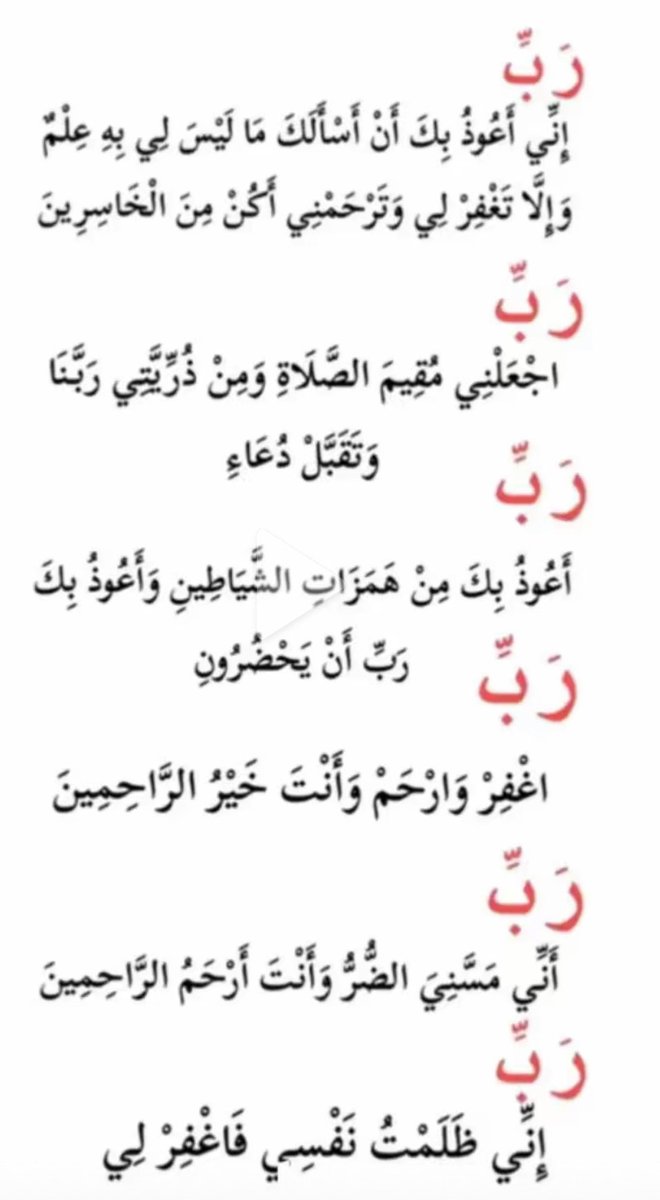 رَبِّ
إِنِّي أَعُوذُ بِكَ أَنْ أَسْأَلَكَ مَا لَيْسَ لِي بِهِ عِلْمٌ
وَإِلَّا تَغْفِرْ لِي وَتَرْحَمْنِي أَكُنْ مِنَ الْخَاسِرِينَ
رَبِّ
اجْعَلْنِي مُقِيمَ الصَّلَاةِ وَمِنْ ذُرِّيَّتِي رَبَّنَا
وَتَقَبَّلْ دُعَاءِ
رَبِّ
أَعُوذُ بِكَ مِنْ هَمَزَاتِ الشَّيَاطِينِ وَأَعُوذُ بِكَ
رَبِّ أَنْ يَحْضُرُونِ
رَبِّ
اغْفِرْ وَارْحَمْ وَأَنْتَ خَيْرُ الرَّاحِمِينَ
رَبِّ
أَنِّي مَسَّنِيَ الضُّرُّ وَأَنْتَ أَرْحَمُ الرَّاحِمِينَ
رَبِّ
إِنِّي ظَلَمْتُ نَفْسِي فَاغْفِرْ لِي